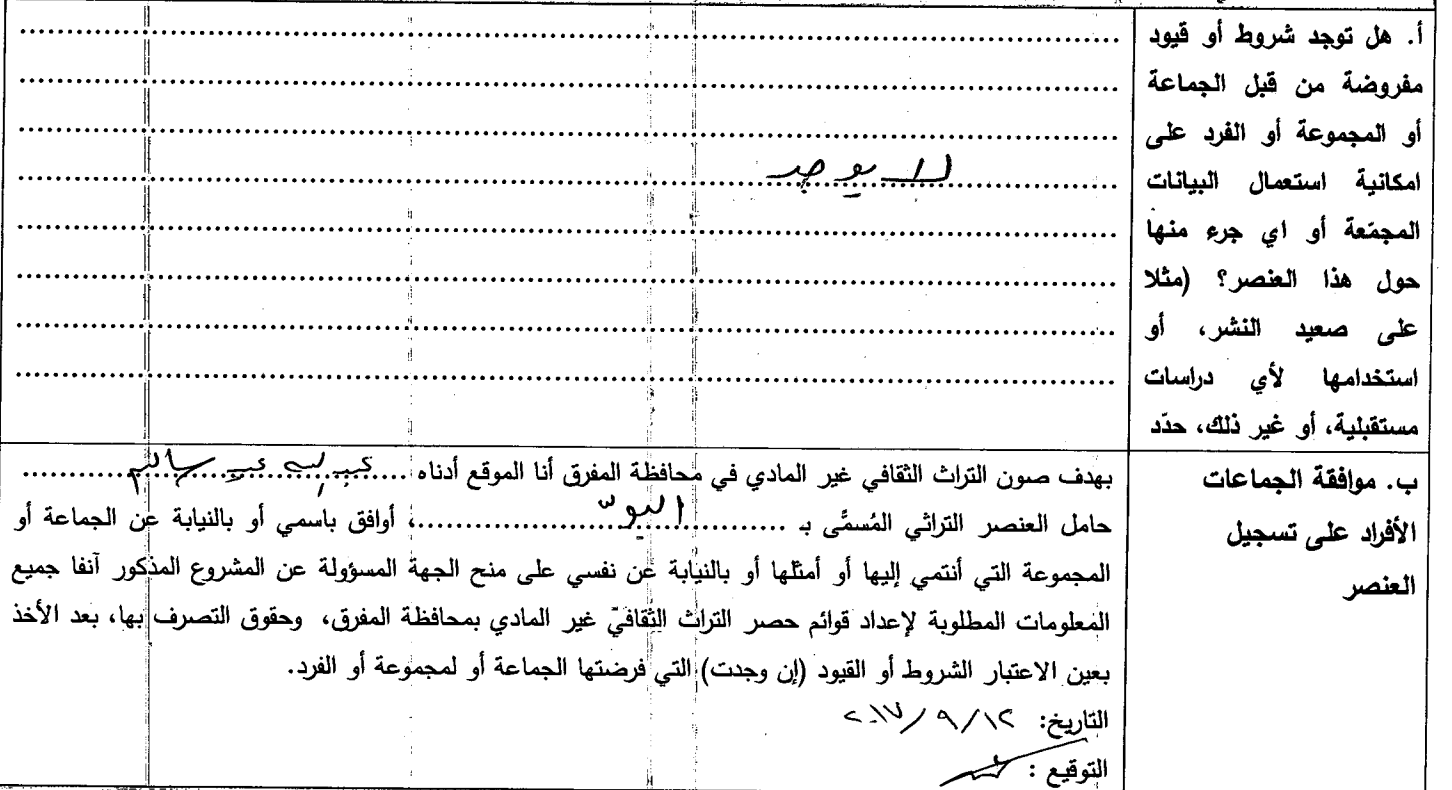 أ. هل توجد شروط أو قيود
مفروضة من قبل الجماعة
أو المجموعة أو الفرد على
امكانية استعمال البيانات
المجمّعة أو اي جرء منها
حول هذا العنصر؟ (مثلا
على صعيد النشر، أو
استخدامها لأي دراسات
مستقبلية، أو غير ذلك، حدّد
لا يوجد
ب. موافقة الجماعات
الأفراد على تسجيل
العنصر
بهدف صون التراث الثقافي غير المادي في محافظة المفرق أنا الموقع أدناه .... سالم
حامل العنصر التراثي المُسمَّى بـ ......................، أوافق باسمي أو بالنيابة عن الجماعة أو
المجموعة التي أنتمي إليها أو أمثلها أو بالنيابة عن نفسي على منح الجهة المسؤولة عن المشروع المذكور آنفا جميع
المعلومات المطلوبة لإعداد قوائم حصر التراث الثقافيّ غير المادي بمحافظة المفرق، وحقوق التصرف بها، بعد الأخذ
بعين الاعتبار الشروط أو القيود (إن وجدت) التي فرضتها الجماعة أو لمجموعة أو الفرد.
التاريخ: ٢٠١٧/٩/١٢
التوقيع :